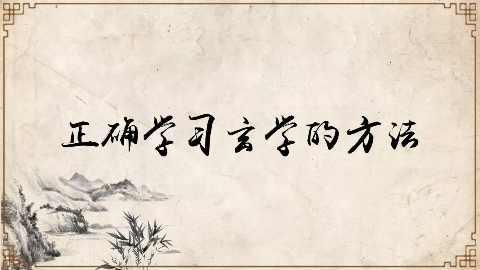 正确学习玄学的方法